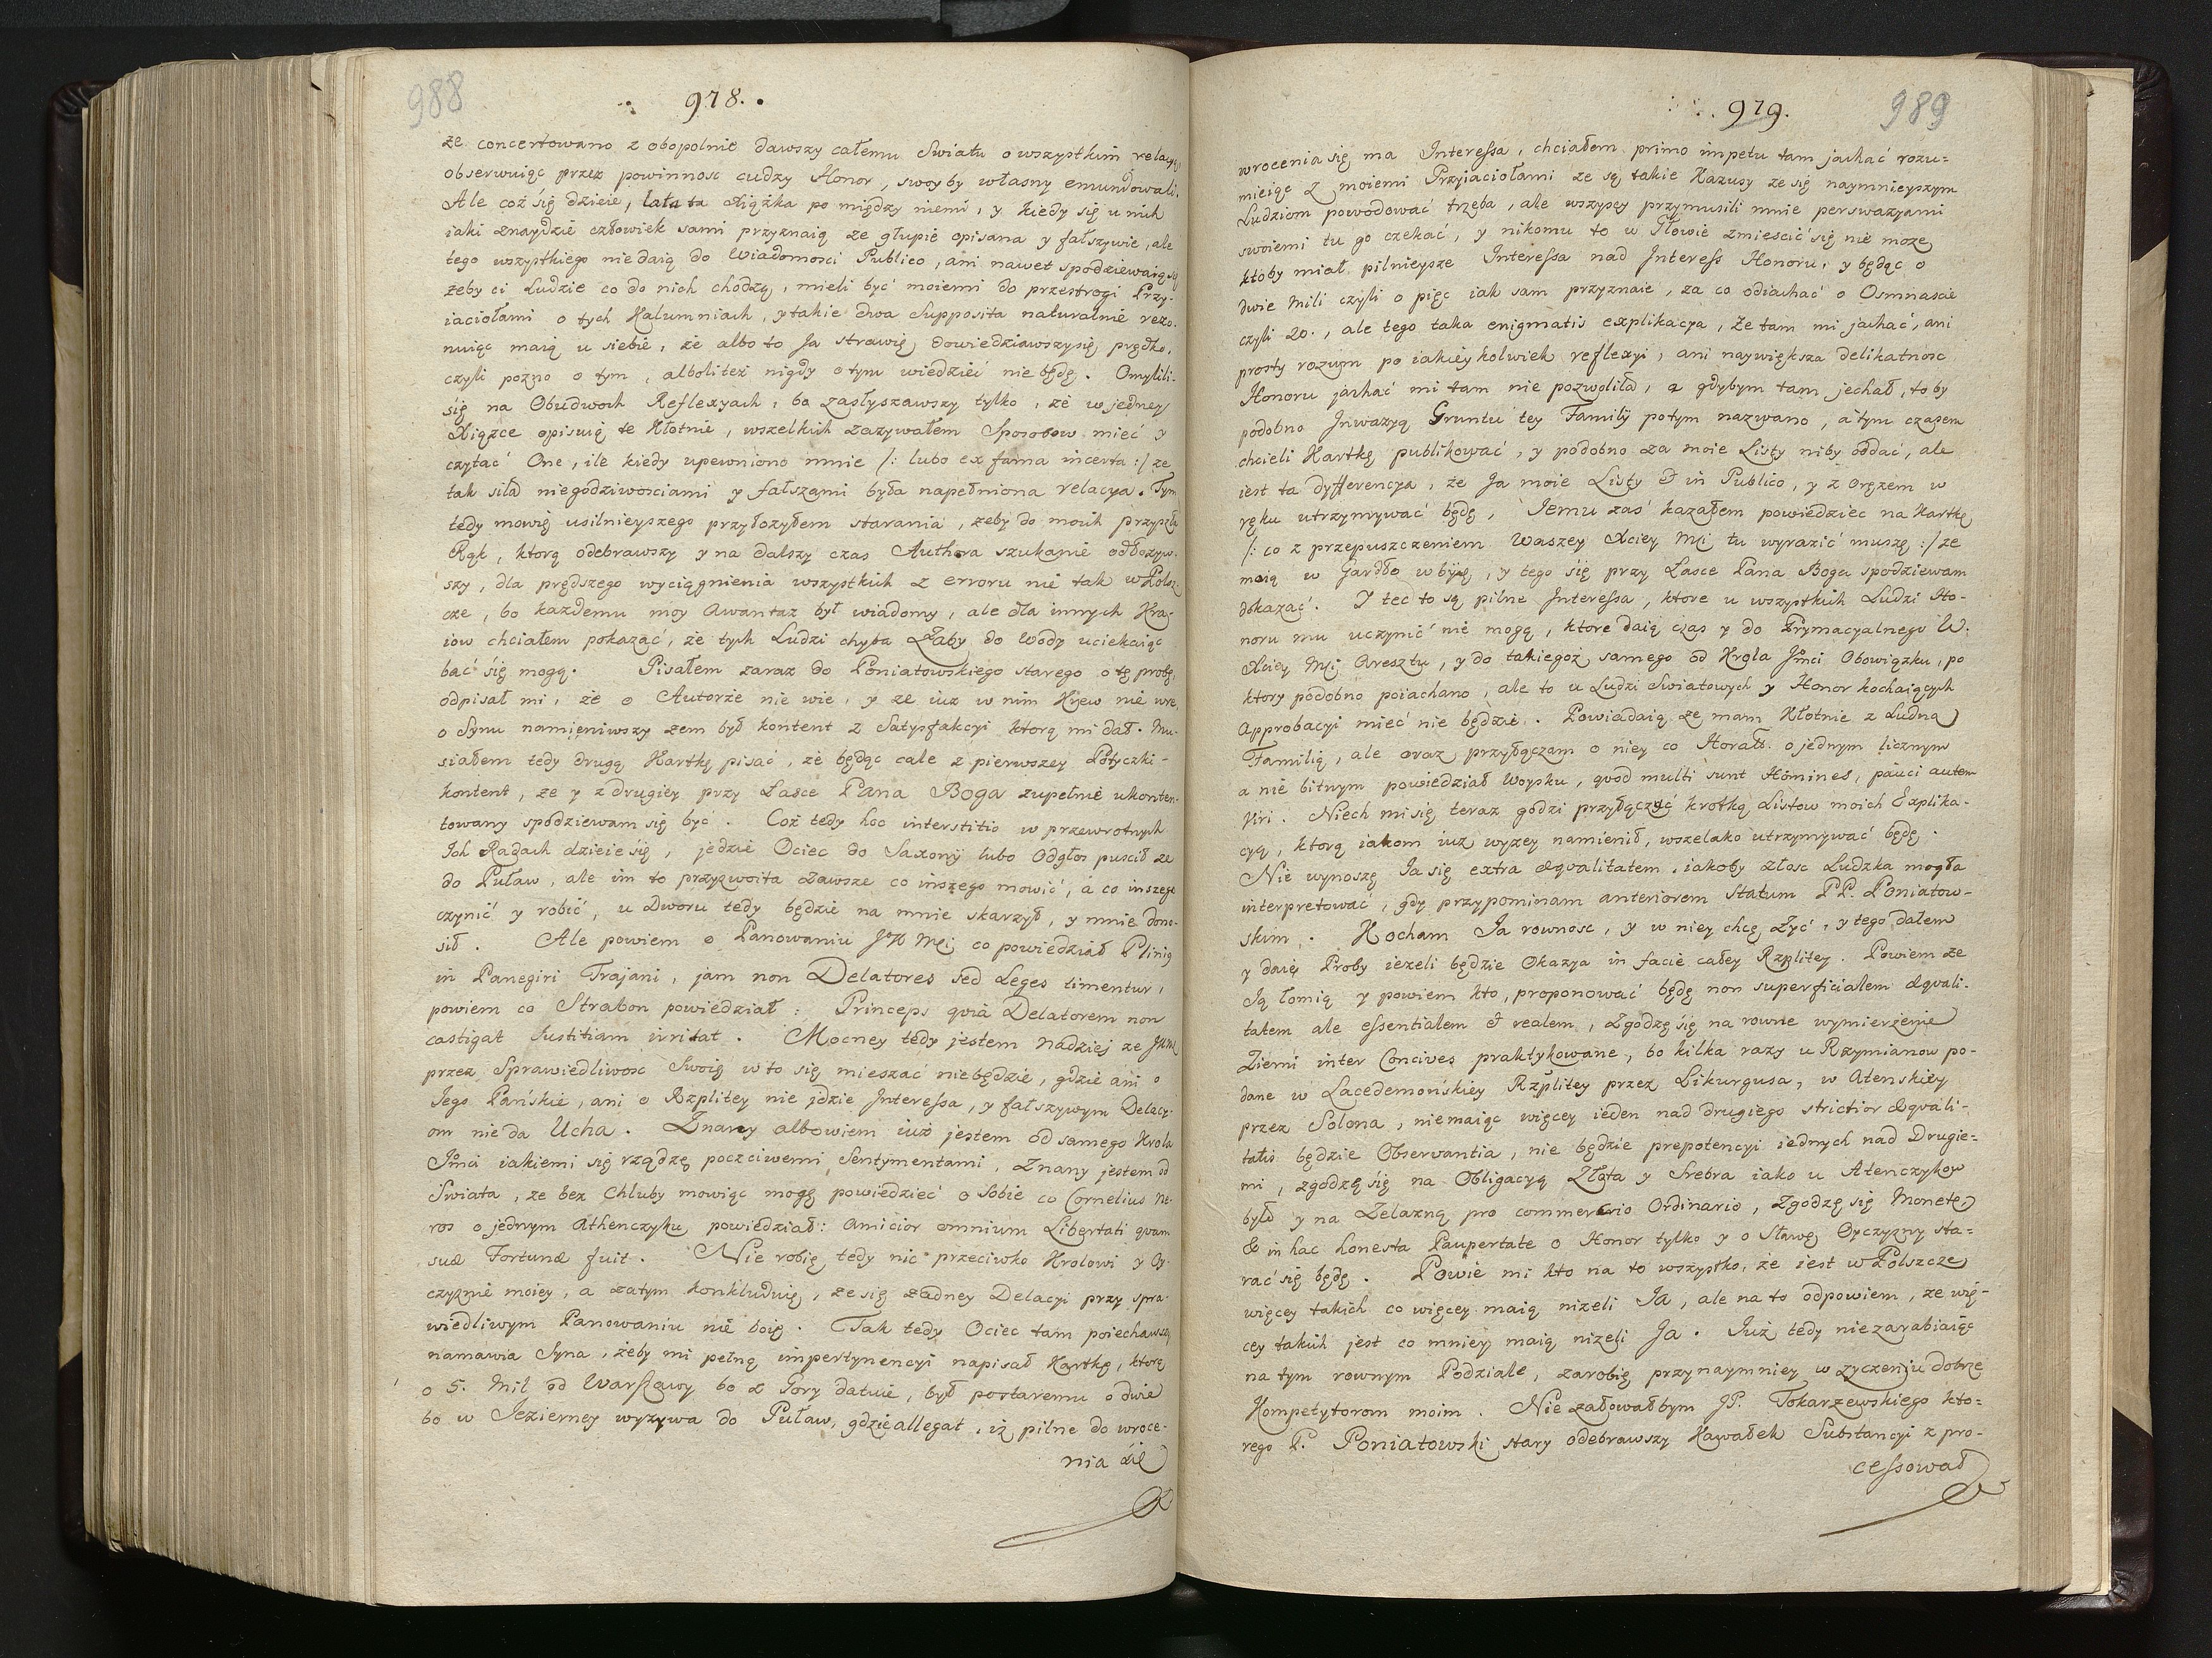 988
978.
ze concertowano z obopolnie dawszy całemu Swiatu o wszystkim relacyą
obserwuiąc przez powinnosc cudzy Honor, swoyby własny emundowali.
Ale coż się dzieie, lata ta xiązka po między niemi, y kiedy się u nich
iaki znaydzie człowiek sami przyznaią ze głupie opisana y fałszywie, ale
tego wszystkiego nie daią do Wiadomosci Publico, ani nawet spodziewaią się
żeby ci Ludzie co do nich chodzą, mieli być moiemi do przestrogi Przy-
iaciołami o tych Kalumniach, y takie dwa Supposita naturalnie rezo-
nuiąc maią u siebie, że albo to Ja strawię dowiedziawszy się prędko,
czyli pozno o tym, albolitez nigdy o tym wiedzieć nie będę. Omylili
się na Obudwoch Reflexyach, bo zasłyszawszy tylko, że w jedney
Xiązce opisuią te Kłotnie, wszelkich zazywałem Sposobow mieć y
czytać One, ile kiedy upewniono mnie /: lubo ex fama incerta :/ ze
tak siła niegodziwosciami y fałszami była napełniona relacya. Tym
tedy mowię usilnieyszego przyłozyłem starania, zeby do moich przyszła
Rąk, ktorą odebrawszy y na dalszy czas Authora szukanie odłozyw-
szy, dla prędszego wyciągnienia wszystkich z erroru nie tak w Polsz-
cze, bo kazdemu moy Awantaz był wiadomy, ale dla innych Kra-
iow chciałem pokazać, że tych Ludzi chyba Zaby do Wody uciekaiąc
bać się mogą. Pisałem zaraz do Poniatowskiego starego o tę probę,
odpisał mi, że o Autorze nie wie, y ze iuz w nim Krew nie wre,
o Synu namieniwszy zem był kontent z Satysfakcyi ktorą mi dał. Mu-
siałem tedy drugą Kartkę pisać, że będąc cale z pierwszey Potyczki
kontent, ze y z drugiey przy Łasce Pana Boga zupełnie ukonten-
towany spodziewam się byc. Coż tedy hoc interstitio w przewrotnych
Ich Radach dzieie się, jedzie Ociec do Saxonÿ lubo Odgłos puscił ze
do Puław, ale im to przyzwoita zawsze co inszego mowić, a co inszego
czynić y robić, u Dworu tedy będzie na mnie skarzył, y mnie dono-
sił. Ale powiem o Panowaniu JK Mci co powiedział Plinig
in Panegiri Trajani, jam non Delatores sed Leges timentur,
powiem co Strabon powiedział: Princeps qvia Delatorem non
castigat Justitiam irritat. Mocney tedy jestem nadziej ze JKM
przez Sprawiedliwosc Swoię w to się mieszać niebędzie, gdzie ani o
Jego Pańskie, ani o Rzplitey nie jdzie Interessa, y fałszywym Delacy-
om nie da Ucha. Znany albowiem iuż jestem od samego Krola
Jmci iakiemi się rządzę poczciwemi Sentymentami, Znany jestem od
Swiata, ze bez Chluby mowiąc mogę powiedzieć o sobie co Cornelius Ne-
ros o jednym Athenczyku powiedział: Amicior omnium Libertati qvam
suæ Fortunæ fuit. Nie robię tedy nic przeciwko Krolowi y Oy-
czyznie moiey, a zatym konkluduię, ze się zadney Delacyi przy spra-
wiedliwym Panowaniu nie boię. Tak tedy Ociec tam poiechawszy
namawia Syna, żeby mi pełną impertynencyi napisał Kartkę, ktorą
o 5. Mil od Warszawy bo z Gory datuie, był postaremu o dwie
bo w Jezierney wyzywa do Puław, gdzie allegat, iż pilne do wroce-
nia się
989
979.
wrocenia się ma Interessa, chciałem primo impetu tam jachać rozu-
mieiąc z moiemi Przyiaciołami ze są takie Kazusy ze się naymnieyszym
Ludziom powodować trzeba, ale wszyscy przymusili mnie perswazyami
swoiemi tu go czekać, y nikomu to w Głowie zmiescić się nie moze,
ktoby miał pilnieysze Interessa nad Interess Honoru, y będąc o
dwie Mili czyli o pięc iak sam przyznaie, za co odiachać o Osmnascie
czyli 20., ale tego taka enigmatis explikacya, że tam mi jachać, ani
prosty rozum po iakieykolwiek reflexyi, ani naywiększa delikatnosc
Honoru jachać mi tam nie pozwoliła, a gdybym tam jechał, to by
podobno Jnwazyą Gruntu tey Familÿ potym nazwano, a tym czasem
chcieli Kartkę publikować, y podobno za moie Listy niby oddać, ale
iest ta dyfferencya, że Ja moie Listy & in Publico, y z Oręzem w
ręku utrzymywać będę, Jemu zaś kazałem powiedziec na Kartkę
/: co z przepuszczeniem Waszey Xciey Mci tu wyrazić muszę :/ ze
moią w Gardło wbiię, y tego się przy Łasce Pana Boga spodziewam
dokazać. Y tec to są pilne Interessa, ktore u wszystkich Ludzi Ho-
noru mu uczynić nie mogą, ktore daią czas y do Prymacyalnego W.
Xciey Mci Aresztu, y do takiegoż samego od Krola Jmci Obowiązku, po
ktory podobno poiachano, ale to u Ludzi Swiatowych y Honor kochaiących
Approbacyi mieć nie będzie. Powiadaią ze mam Kłotnie z Ludną
Familią, ale oraz przyłączam o niey co Horałt. o jednym licznym
a nie bitnym powiedział Woysku, qvod multi sunt Homines, pauci autem
Viri. Niech mi się teraz godzi przyłączyć krotką Listow moich Explika-
cyą, ktorą iakom iuz wyzey namienił, wszelako utrzymywać będę.
Nie wynoszę Ja się extra æqvalitatem, iakoby złosc Ludzka mogła
interpretować, gdy przypominam anteriorem statum PP. Poniatow-
skim. Kocham Ja rownosc, y w niey chcę Zyć, y tego dałem
y daię Proby iezeli będzie Okazya in facie całey Rzplitey. Powiem ze
Ją łomią y powiem kto, proponować będę non superficialem æqvali-
tatem ale essentialem & realem, Zgodzę się na rowne wymierzenie
Ziemi inter Concives praktykowane, bo kilka razy u Rzymianow po-
dane w Lacedemońskiey Rzplitey przez Likurgusa, w Atenskiey
przez Solona, niemaiąc więcey ieden nad drugiego strictior æqvali-
tatis będzie Observantia, nie będzie prepotencyi iednych nad Drugie-
mi, zgodzę się na Obligacyą Złota y Srebra iako u Atenczykow
było y na Zelazną pro commercio Ordinario, Zgodzę się Monetę
& in hac honesta Paupertate o Honor tylko y o Sławę Oyczyzny sta-
rać się będę. Powie mi kto na to wszystko, że iest w Polszcze
więcey takich co więcey maią nizeli Ja, ale na to odpowiem, ze wię-
cey takich jest co mniey maią nizeli Ja. Już tedy niezarabiaiąc
na tym rownym Podziale, zarobię przynaymniey w zyczeniu dobrze
Kompetytorom moim. Nie załowałbym JP. Tokarzewskiego kto-
rego P. Poniatowski stary odebrawszy Kawałek Substancyi z pro-
cessował